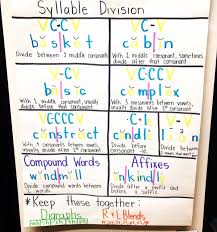 Syllable Division
V-C-C-V
basket
Divide between 2 middle consonants.
V-C-V
cabin
With 1 middle consonant, sometimes
divide after that consonant.
V-C-V
With 1 middle consonant, usually
divide before that consonant.
V-CCC-V
complex
With 3 consonants between vowels,
usually divide after 1st consonant.
VCCCCV
construct
With 4 consonants between vowels,
usually divide after 1st consonant.
Divide before
consonant -le.
Compound Words
windmill
Divide compound words between
2 words.
Affixes
unkindly
Divide after a prefix and
before a suffix.
*Keep these together:
Digraphs
R + L Blends